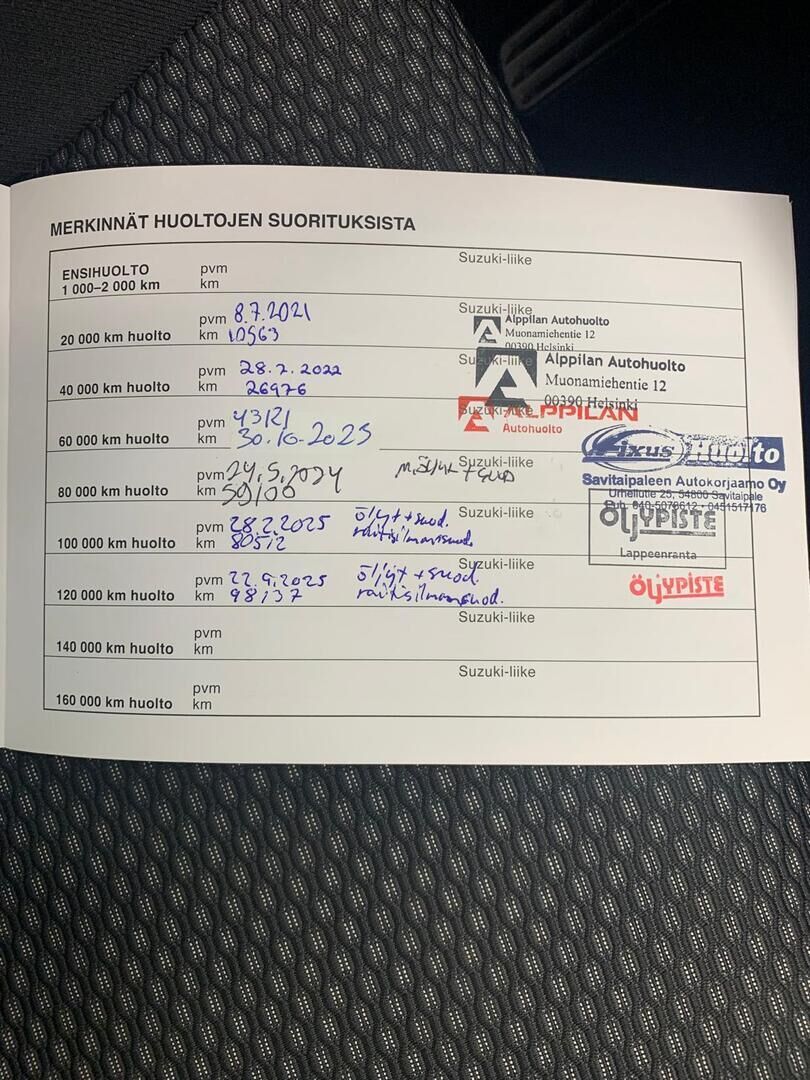 MERKINNÄT HUOLTOJEN SUORITUKSISTA
ENSIHUOLTO pvm Suzuki-liike
1 000–2 000 km km
pvm 8.7.2021 Suzuki-liike
20 000 km huolto km 10563
Alppilan Autohuolto
Muonamiehentie 12
00390 Helsinki
pvm 28.7.2022 Suzuki-liike
40 000 km huolto km 26976
Alppilan Autohuolto
Muonamiehentie 12
00390 Helsinki
pvm 43121 Suzuki-liike
60 000 km huolto km 30.10.2023
ALPPILAN
Autohuolto
pvm 24.5.2024 Suzuki-liike
80 000 km huolto km 59100
Fixus Huolto
Savitaipaleen Autokorjaamo Oy
Urheilutie 25, 54800 Savitaipale
0451517176
pvm 28.2.2025 öljyt + suod. Suzuki-liike
100 000 km huolto km 80512 raitisilmansuod.
ÖLJYPISTE
Lappeenranta
pvm 22.9.2025 öljyt + suod. Suzuki-liike
120 000 km huolto km 98137 raitisilmansuod.
ÖLJYPISTE
pvm Suzuki-liike
140 000 km huolto km
pvm Suzuki-liike
160 000 km huolto km